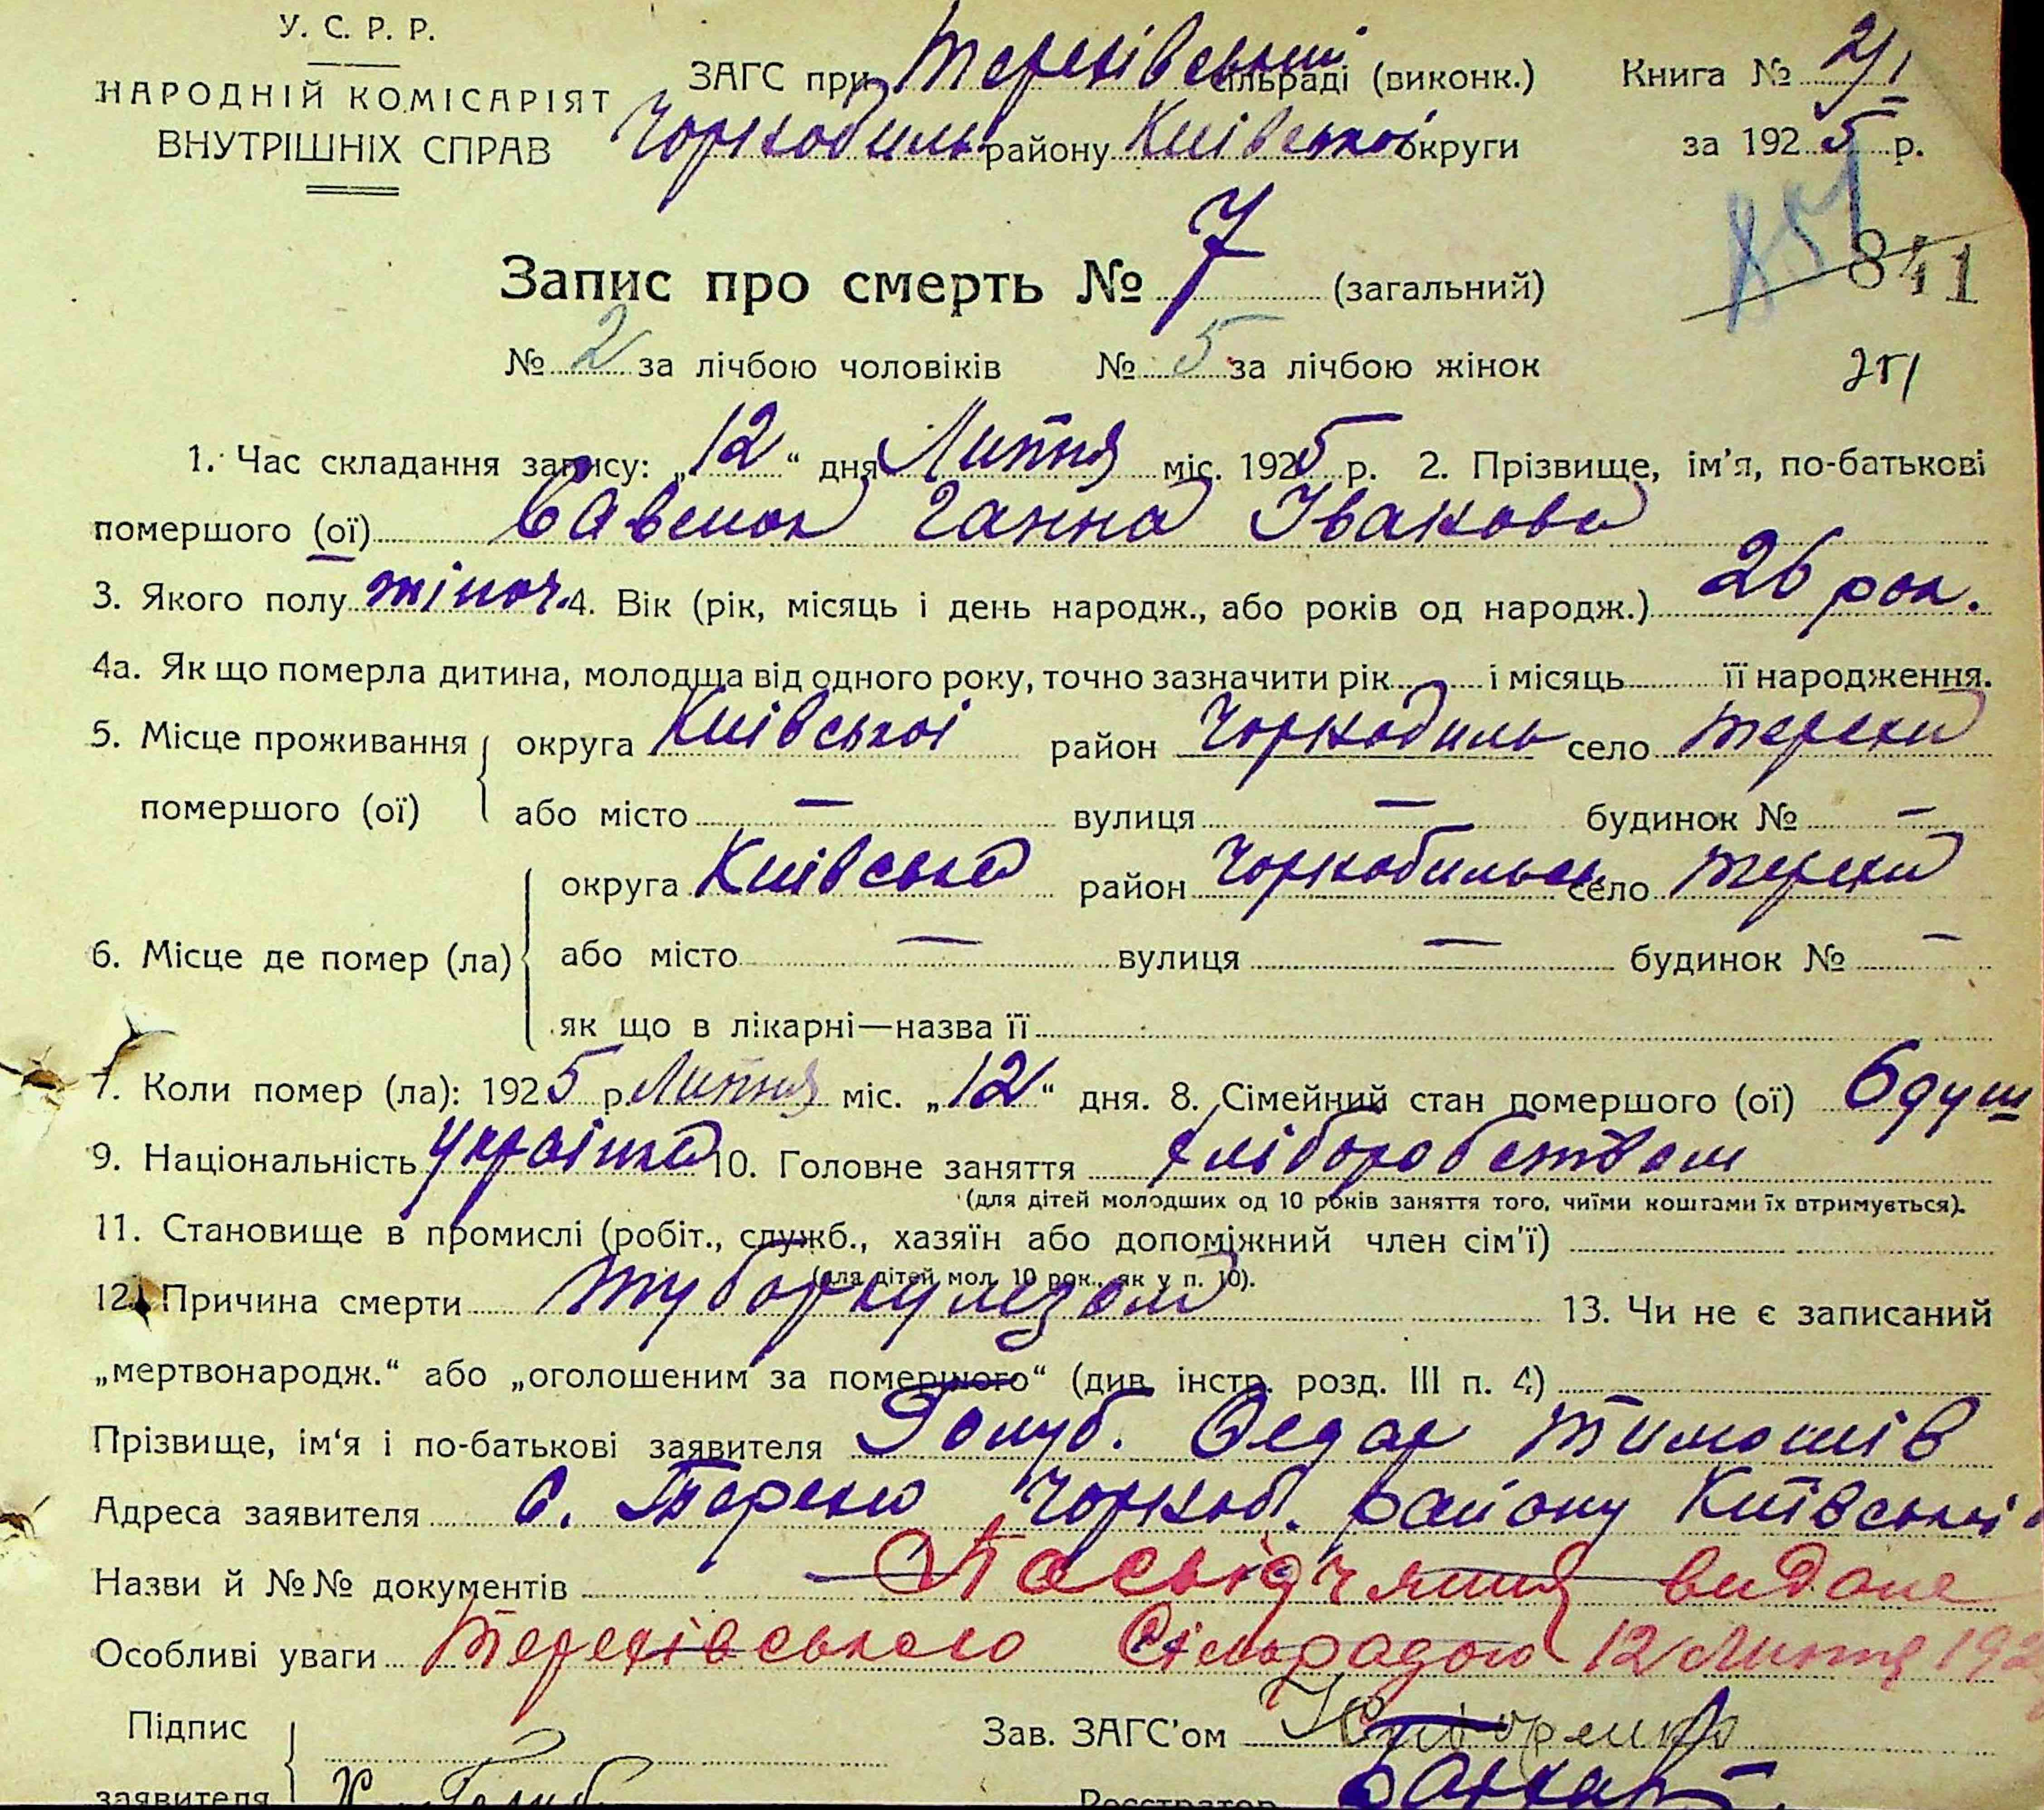 У. С. Р. Р.
НАРОДНІЙ КОМІСАРІЯТ
ВНУТРІШНІХ СПРАВ
ЗАГС при Терехівський сільраді (виконк.)
Чорнобиль району Київської округи
Книга № 2/1
за 1925 р.
Запис про смерть № 7 (загальний)
851
841
№ 2 за лічбою чоловіків № 5 за лічбою жінок
251
1. Час складання запису: „12“ дня Липня міс. 1925 р. 2. Прізвище, ім’я, по-батькові
помершого (ої) Савенок Ганна Іванова
3. Якого полу жіноч. 4. Вік (рік, місяць і день народж., або років од народж.) 26 рок.
4а. Як що померла дитина, молодща від одного року, точно зазначити рік і місяць її народження.
5. Місце проживання помершого (ої) округа Київської район Чорнобиль село Терехи
або місто — вулиця — будинок № —
6. Місце де помер (ла) округа Київська район Чорнобильськ село Терехи
або місто — вулиця — будинок № —
як що в лікарні—назва її
7. Коли помер (ла): 1925 р. Липня міс. „12“ дня. 8. Сімейний стан помершого (ої) 6 душ
9. Національність Українка 10. Головне заняття хліборобством
(для дітей молодших од 10 років заняття того, чиїми коштами їх отримується).
11. Становище в промислі (робіт., служб., хазяїн або допоміжний член сім’ї)
(для дітей мол. 10 рок., як у п. 10).
12. Причина смерти туборкульозом 13. Чи не є записаний
„мертвонародж.“ або „оголошеним за помершого“ (див. інстр. розд. III п. 4)
Прізвище, ім‘я і по-батькові заявителя Голуб. Федор Тимошів
Адреса заявителя с. Терехи Чорноб. району Київської
Назви й №№ документів Посьвідчення видане
Особливі уваги Терехівською Сільрадою 12 Липня 192
Підпис
заявителя Голуб
Зав. ЗАГС’ом
Реєстратор